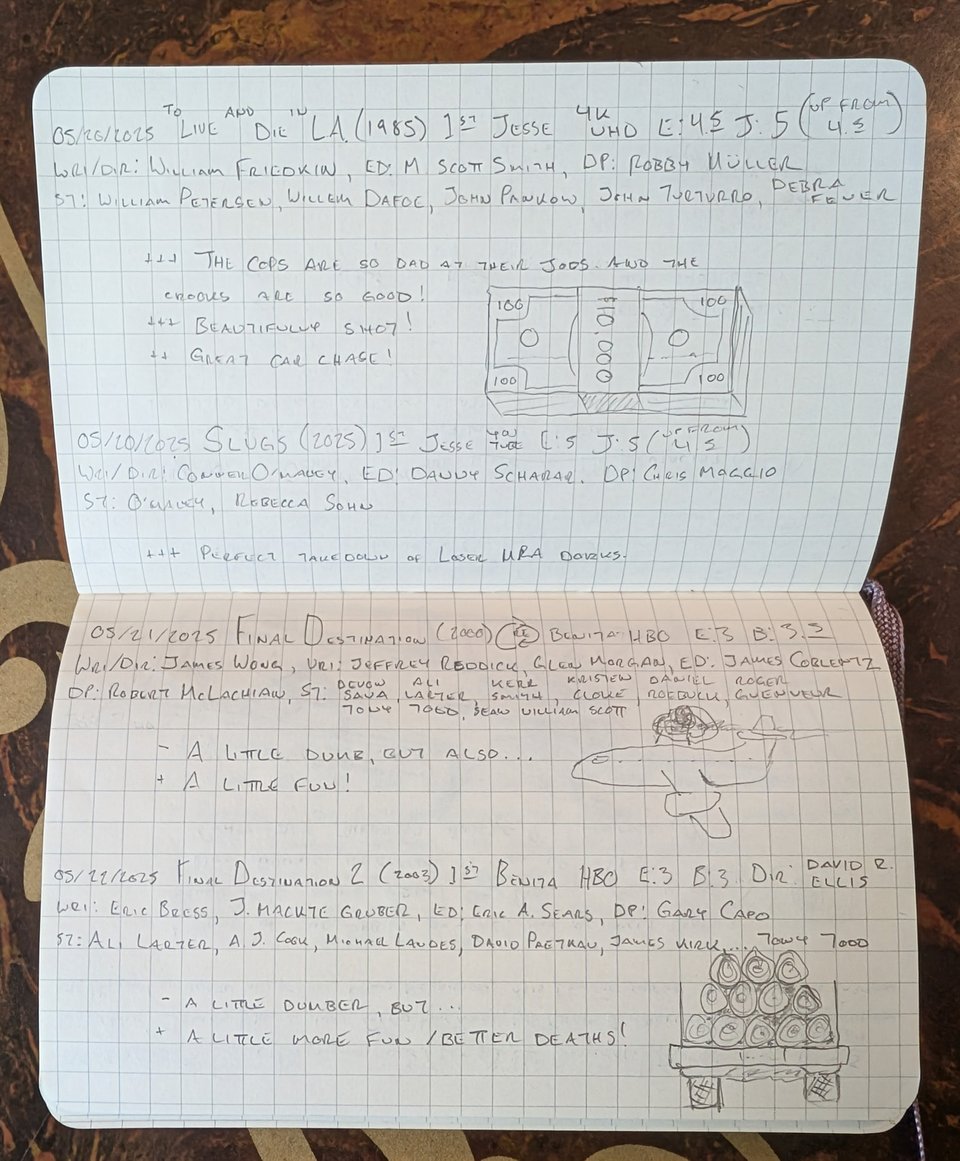 05/20/2025 TO LIVE AND DIE IN LA. (1985) 1ST JESSE 4K UHD E: 4.5 J: 5 (UP FROM 4.5)
WRI/DIR: WILLIAM FRIEDKIN, ED: M SCOTT SMITH, DP: ROBBY MÜLLER
ST: WILLIAM PETERSEN, WILLEM DAFOE, JOHN PANKOW, JOHN TURTURRO, DEBRA FEUER
+++ THE COPS ARE SO BAD AT THEIR JOBS. AND THE
CROOKS ARE SO GOOD!
+++ BEAUTIFULLY SHOT!
++ GREAT CAR CHASE!
100 100
$10,000
100 100
05/20/2025 SLUGS (2025) 1ST JESSE YOUTUBE E: 5 J: 5 (UP FROM 4.5)
WRI/DIR: CONNER O'MALLEY, ED: DANNY SCHARAR, DP: CHRIS MAGGIO
ST: O'MALLEY, REBECCA SOHN
+++ PERFECT TAKEDOWN OF LOSER DORKS.
05/21/2025 FINAL DESTINATION (2000) BENITA HBO E: 3 B: 3.5
WRI/DIR: JAMES WONG, WRI: JEFFREY REDDICK, GLEN MORGAN, ED: JAMES COBLENTZ
DP: ROBERT McLACHLAN, ST: DEVON SAWA, ALI LARTER, KERR SMITH, KRISTEN CLOKE, DANIEL ROEBUCK, ROGER GUENVEUR
TONY TODD, SEAN WILLIAM SCOTT
- A LITTLE DUMB, BUT ALSO...
+ A LITTLE FUN!
05/22/2025 FINAL DESTINATION 2 (2003) 1ST BENITA HBO E: 3 B: 3 DIR: DAVID R. ELLIS
WRI: ERIC BRESS, J. MACKYE GRUBER, ED: ERIC A. SEARS, DP: GARY CAPO
ST: ALI LARTER, A J. COOK, MICHAEL LANDES, DAVID PAETKAU, JAMES KIRK,... TONY TODD
- A LITTLE DUMBER, BUT...
+ A LITTLE MORE FUN / BETTER DEATHS!